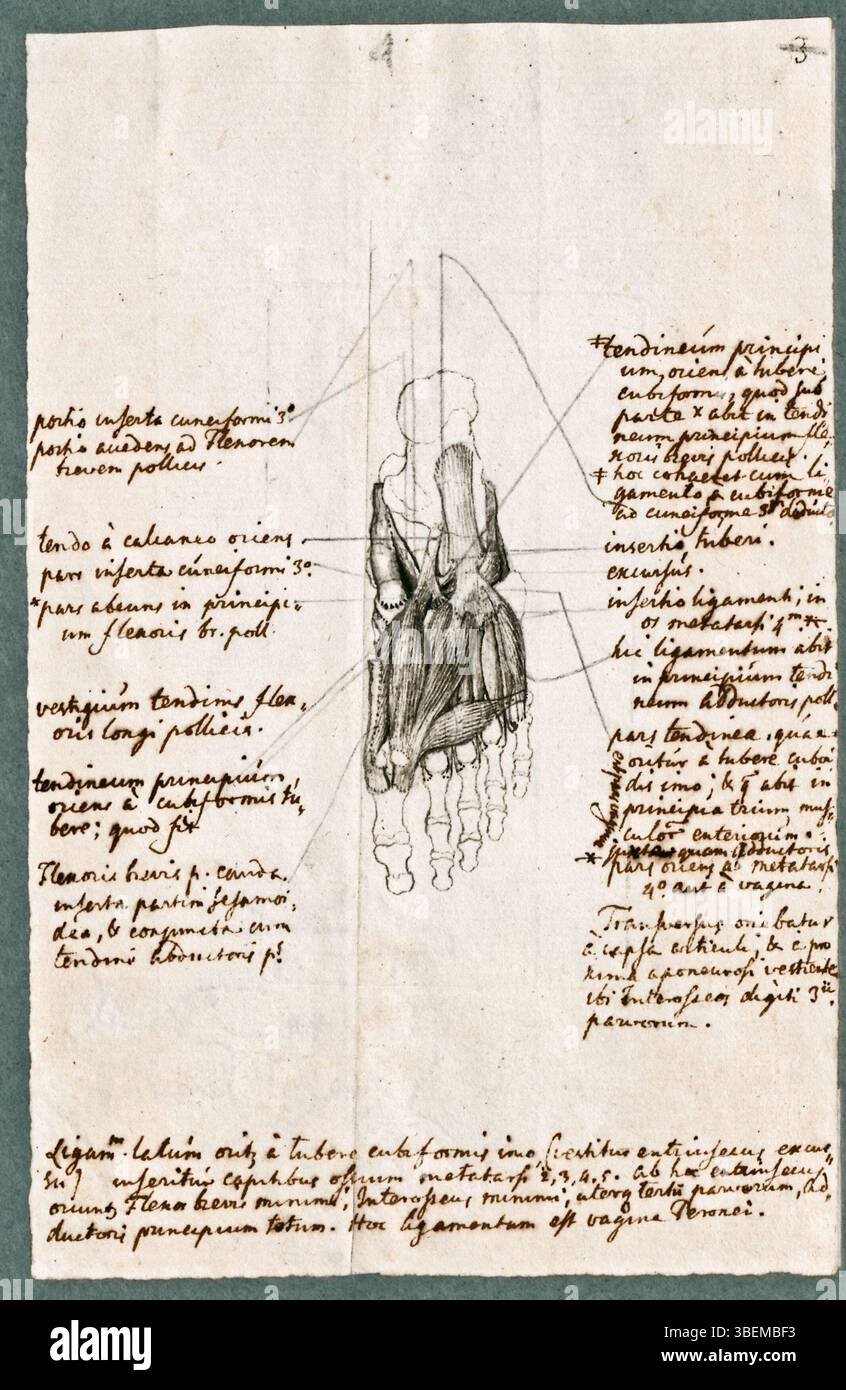 3
portio inserta cuneiformi 3º
portio accedens ad Flexorem
brevem pollicis.
tendo à calcaneo oriens.
pars inserta cuneiformi 3º.
*pars abeuns in principi-
um flexoris br. poll.
vestigium tendinis flex-
oris longi pollicis.
tendineum principium,
oriens à cubiformis tu-
bere; quod fit
Flexoris brevis p. cauda
inserta partim sesamoi-
dea, & conjuncta cum
tendine abductoris p.
tendineum principi
um, oriens à tubere
cubiformis, quod sub
parte x abit in tendi
neum principium fle
xoris brevis pollicis.
‡ hoc cohaeret cum li-
gamento a cubiforme
ad cuneiforme 3
insertio tuberi.
excursus.
insertio ligamenti, in
os metatarsi 4.
hic ligamentum abit
in principium tendi
neum adductoris poll.
pars tendinea, quae
oritur à tubere cuboi
dis imo; & abit in
principia trium mus-
culor exteriorum.
quam adductoris
pars oriens à metatarsi
4º aut à vagina.
Transversus oriebatur
a capsa articuli, & e pro
xima aponeurosi vestiente
ibi Interosseos digiti 3
parvorum.
Ligam. latum orit à tubere cubiformis imo, (vestitur extrinsecus excur-
su) inseritur capitibus ossium metatarsi 2, 3, 4, 5. ab hoc extrinsecus
oriunt Flexor brevis minimi, Interosseus minimi, uterq tertii parvorum, ad-
ductoris principium totum. Hoc ligamentum est vagina Peronei.
alamy
alamy
Image ID: 3BEMBF3
www.alamy.com